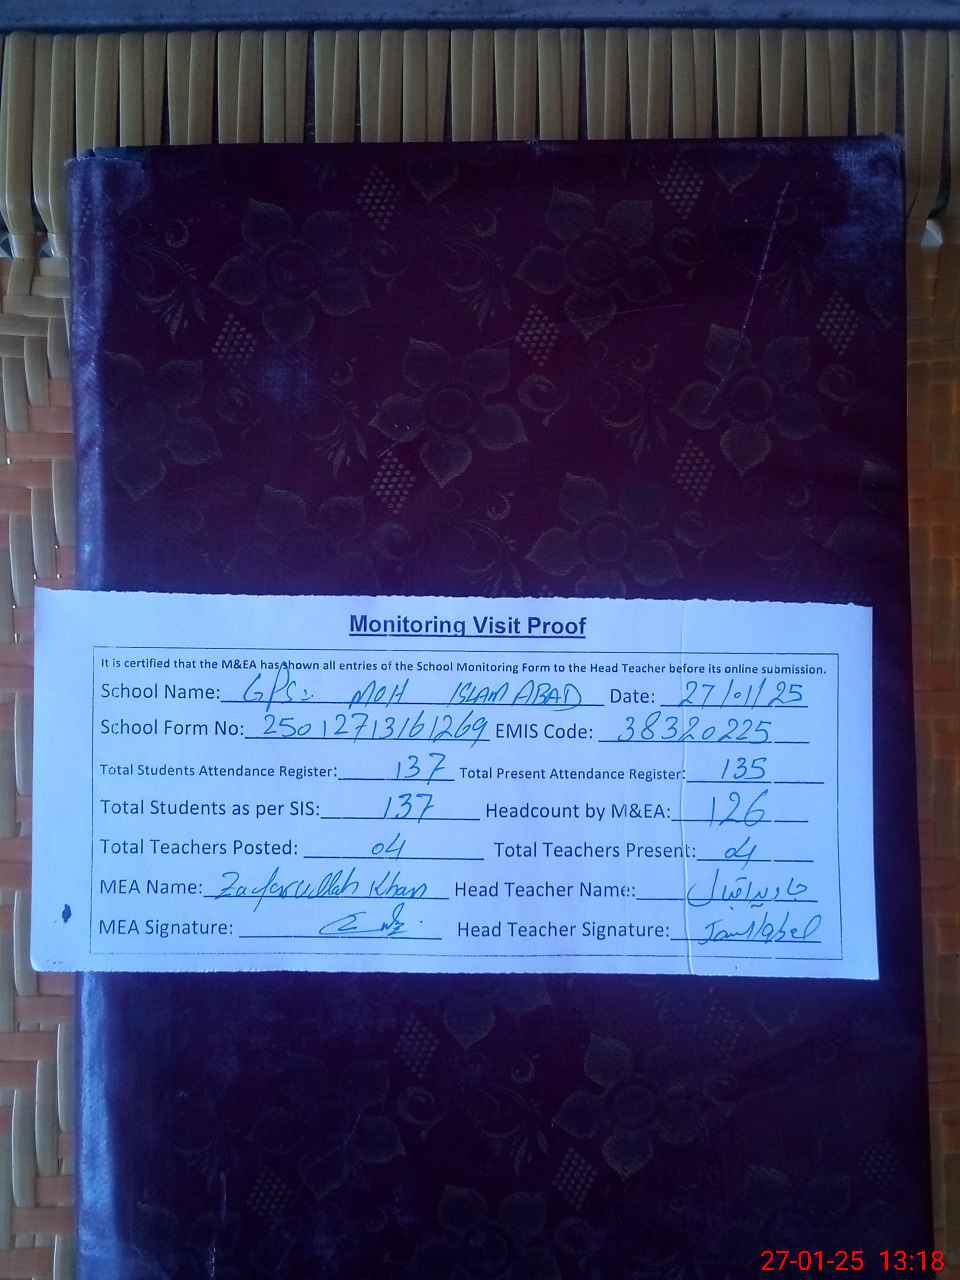 Monitoring Visit Proof
It is certified that the M&EA has shown all entries of the School Monitoring Form to the Head Teacher before its online submission.
School Name: GPS: MOH ISLAM ABAD Date: 27/01/25
School Form No: 25012713161269 EMIS Code: 38320225
Total Students Attendance Register: 137 Total Present Attendance Register: 135
Total Students as per SIS: 137 Headcount by M&EA: 126
Total Teachers Posted: 04 Total Teachers Present: 04
MEA Name: Zafarullah Khan Head Teacher Name: جاوید اقبال
MEA Signature: Head Teacher Signature:
27-01-25 13:18